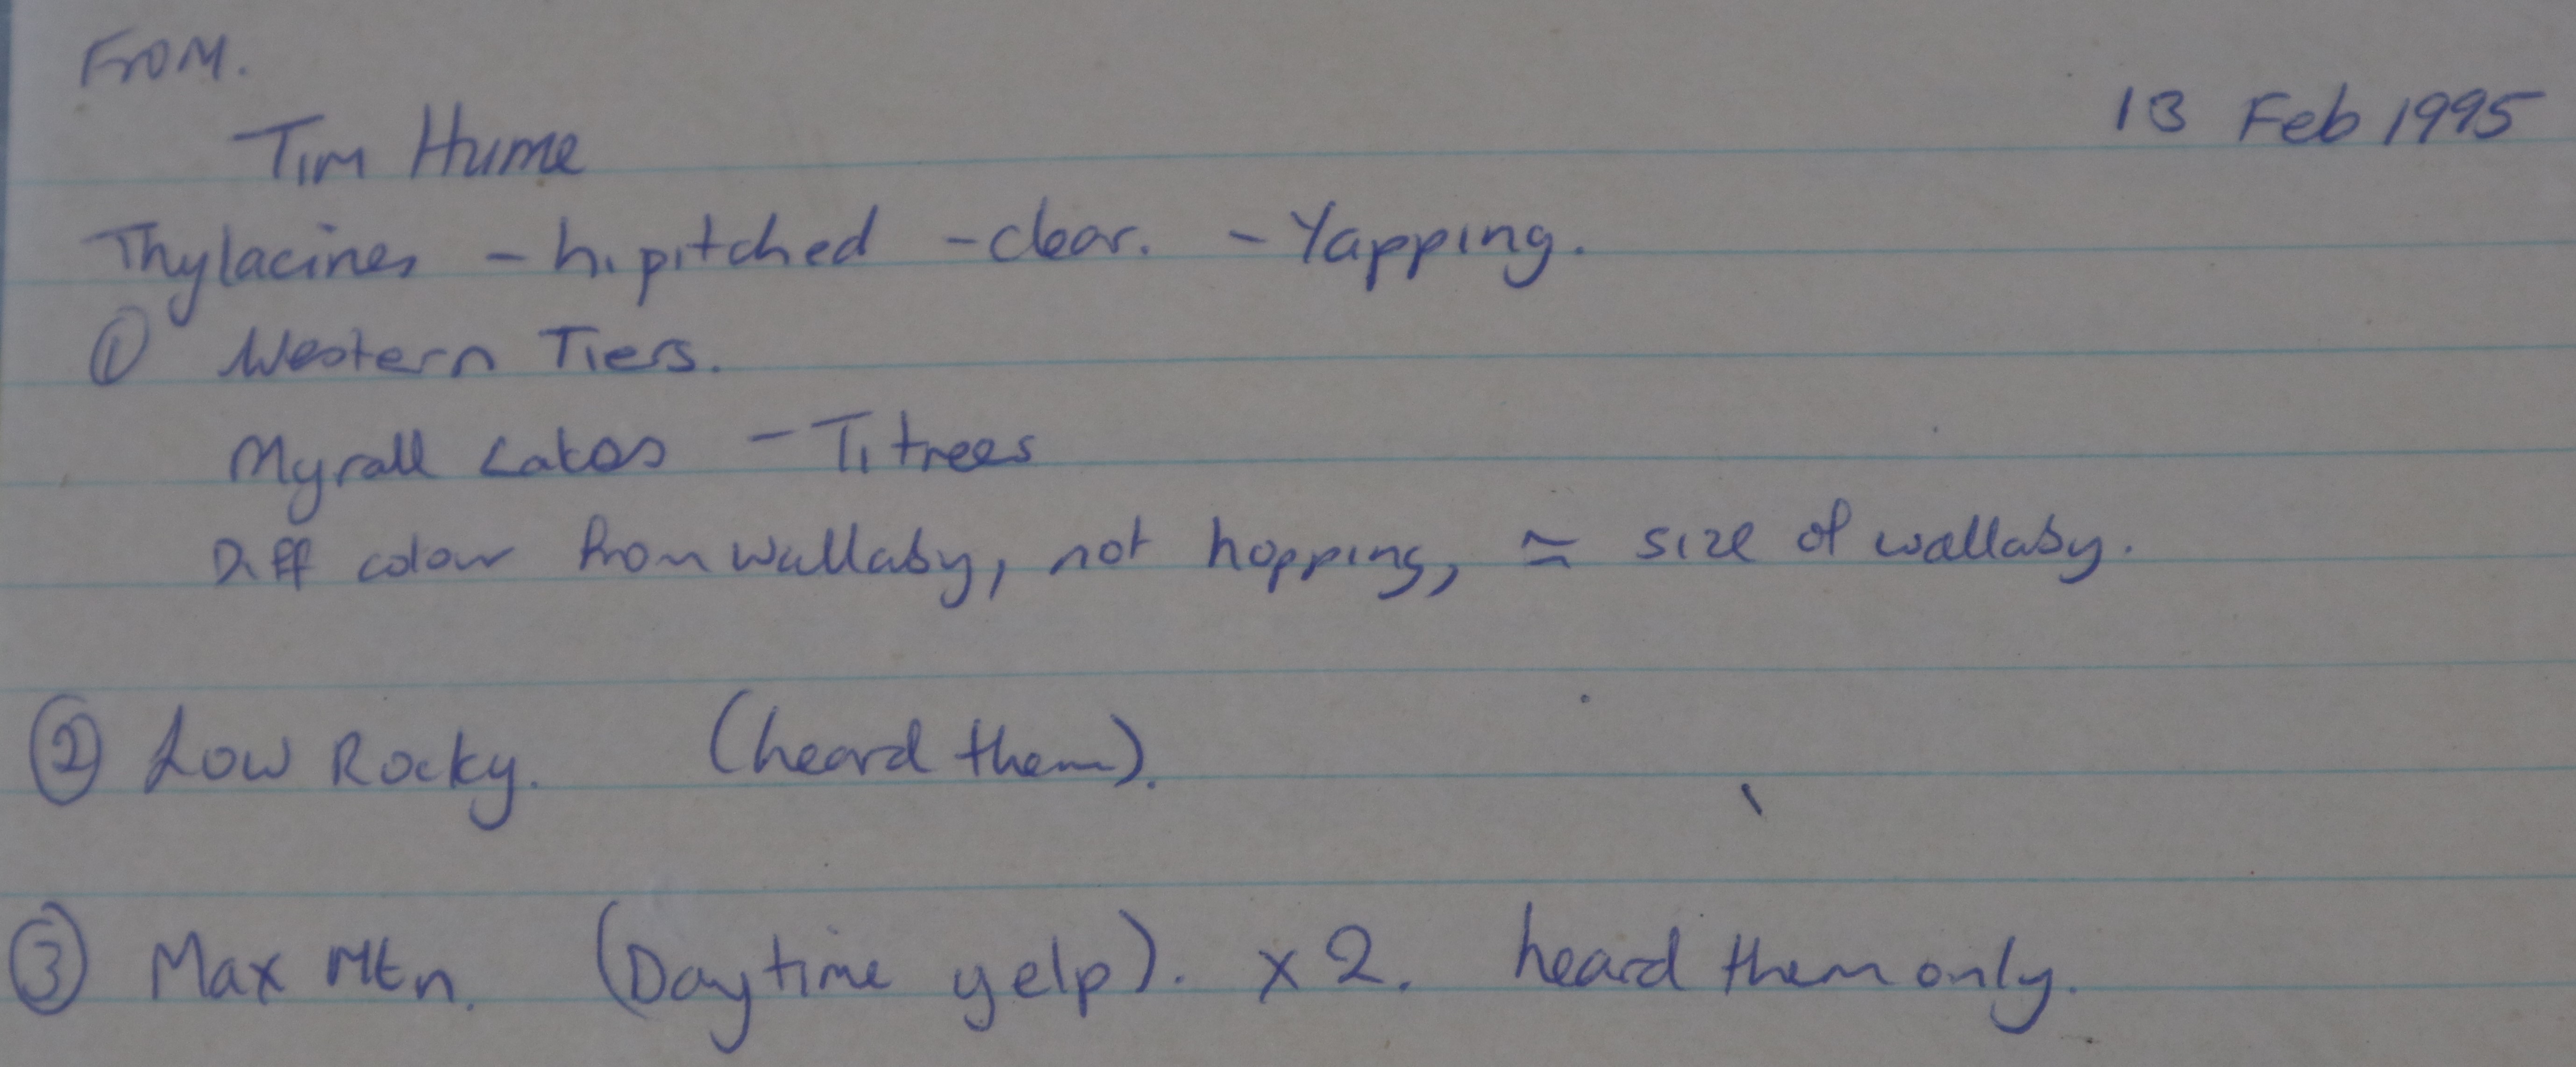 From.
Tim Hume
13 Feb 1995
Thylacines - hi pitched - clear. - Yapping.
① Western Tiers.
Myrall Lakes - Ti trees
Diff colour from wallaby, not hopping, ≃ size of wallaby.
② Low Rocky. (heard them).
③ Max Mtn. (Daytime yelp). x 2. heard them only.